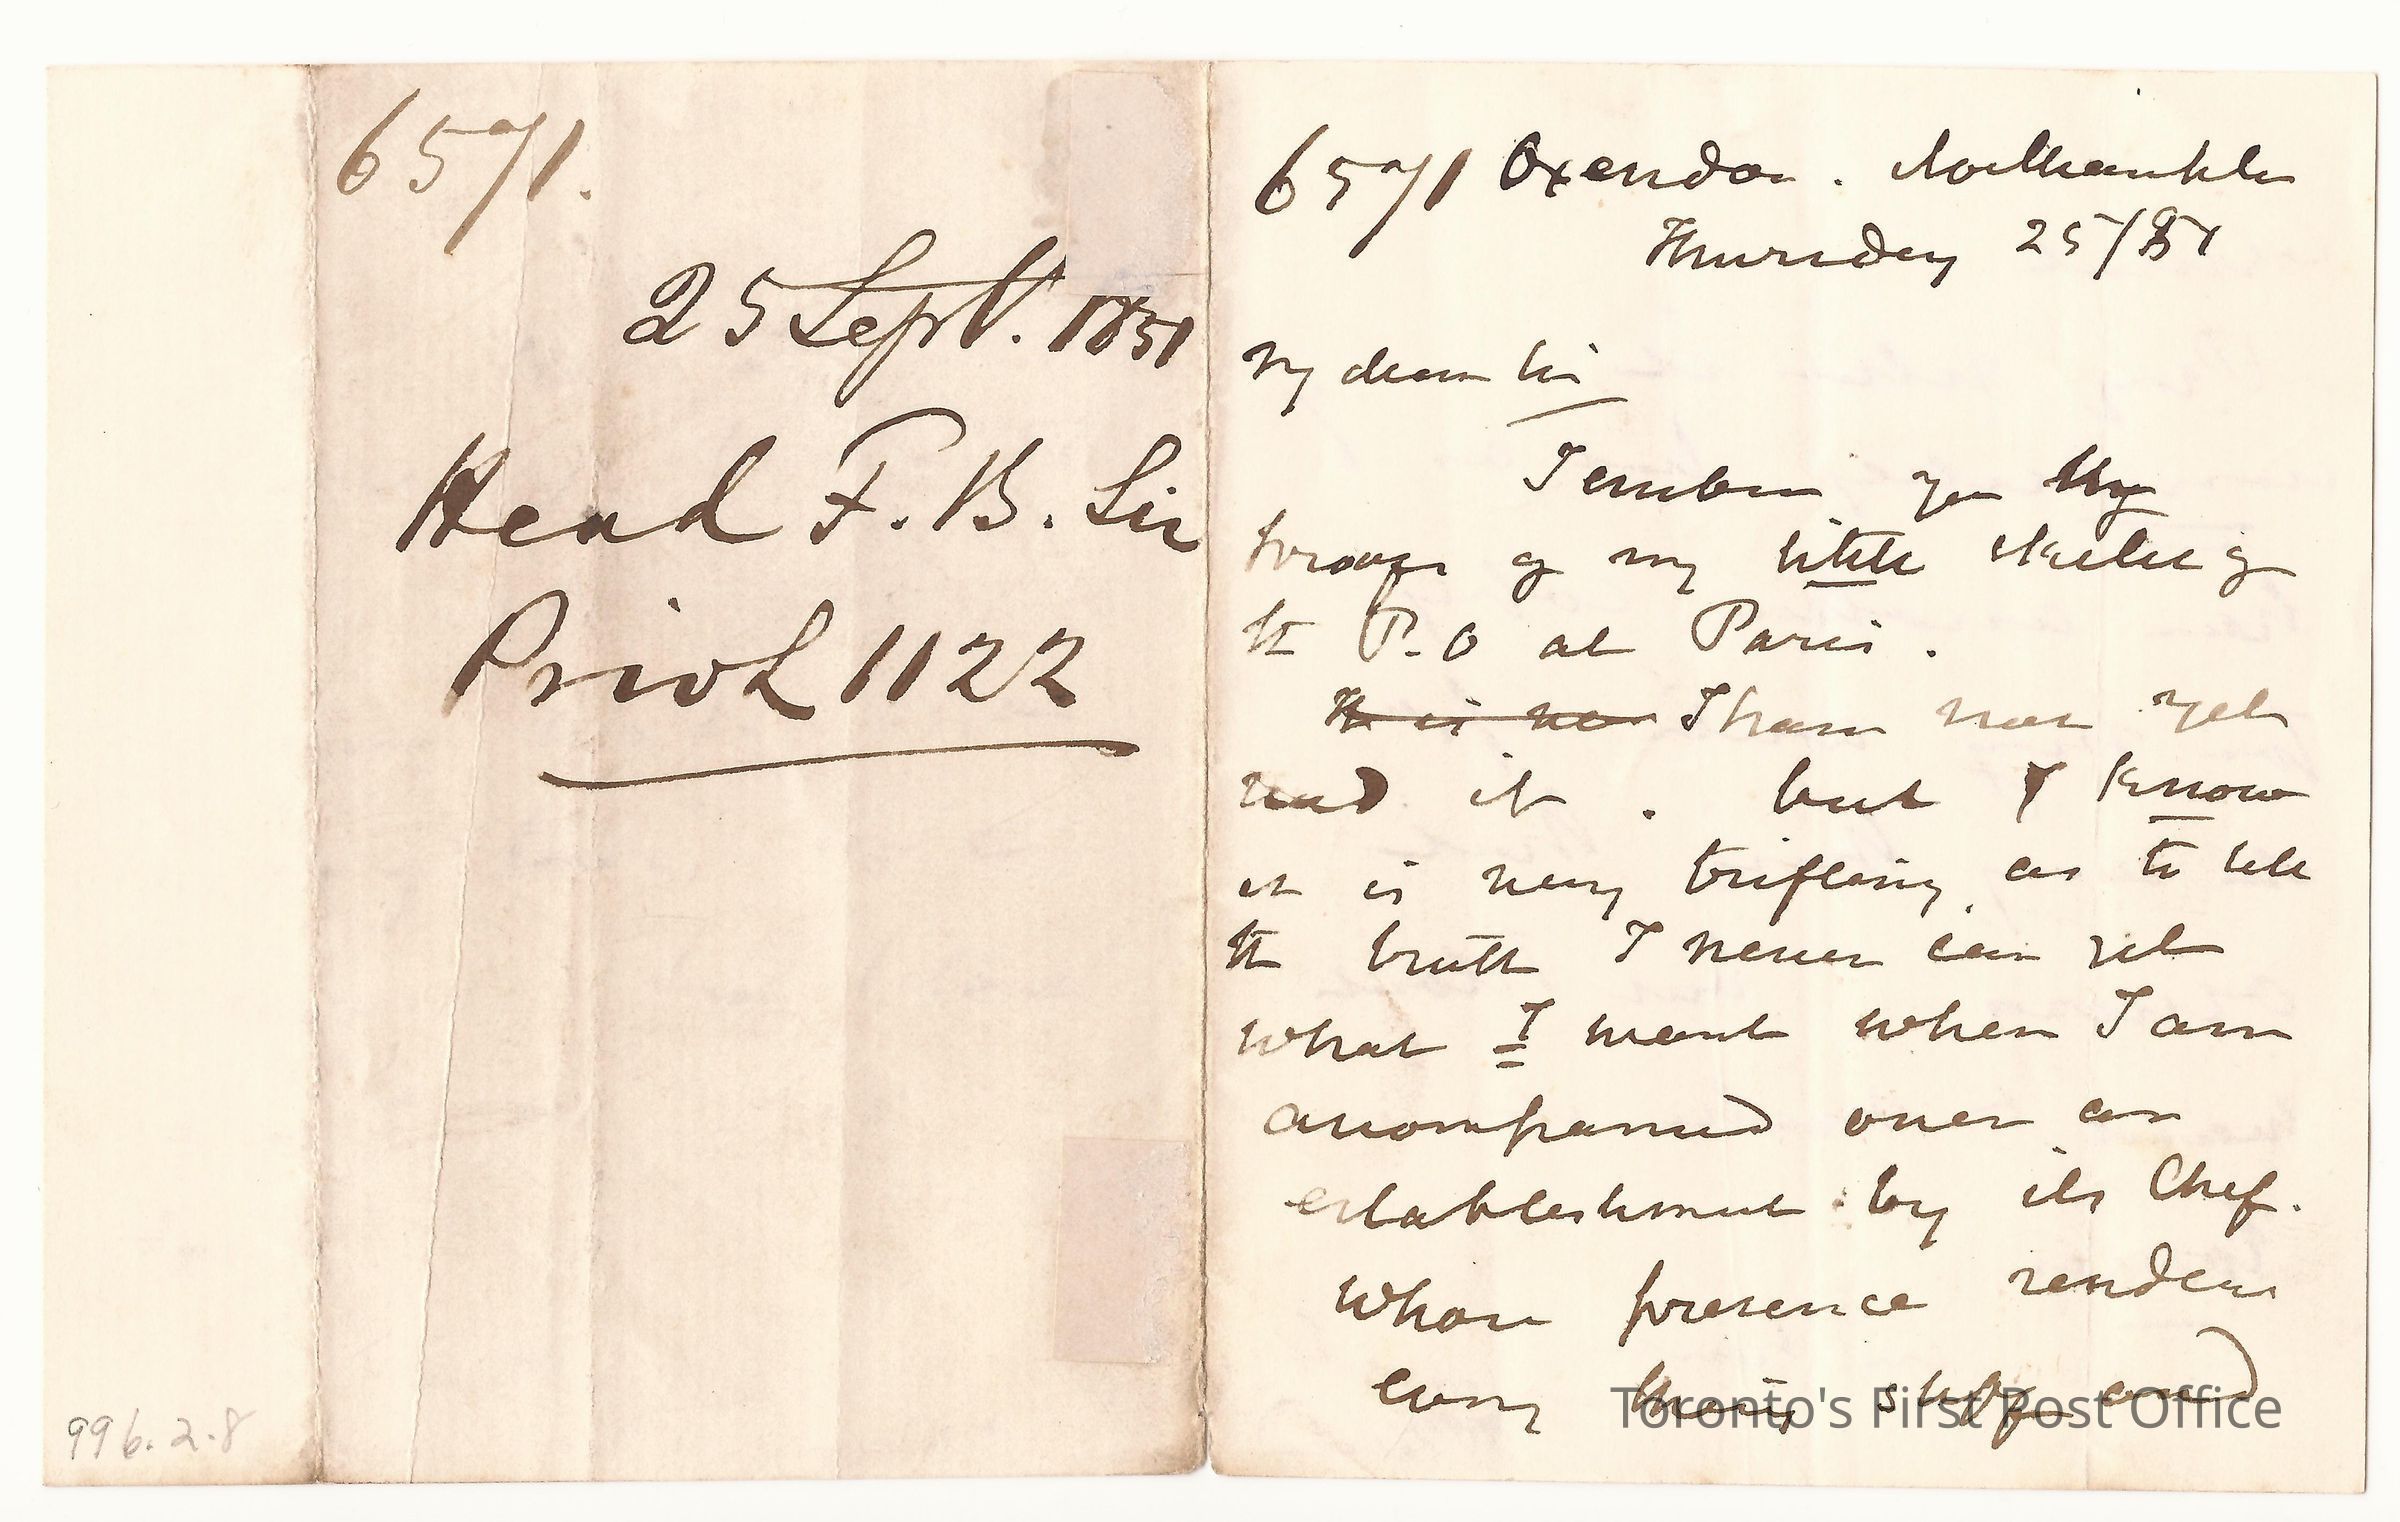 6571.
25 Sept. 1851
Head F. B. Sir
Priv L 1122
996.2.8
6571 Oxendon. Northampton
Thursday 25/51
My dear Sir
I enclose you the
proofs of my little sketch of
the P.O at Paris.
It is no I have not yet
read it. but I know
it is very trifling, as to tell
the truth I never can get
what I want when I am
accompanied over an
establishment by its Chef.
whose presence renders
every thing stiff and
Toronto's First Post Office